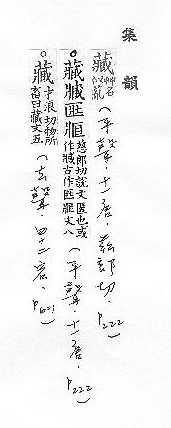 集韻
藏 艸名 (平聲．十一唐．茲郎切．P222)
。藏臧匨 慈郎切說文匿也或作臧古作匨文八 (平聲．十一唐．P222)
。藏 才浪切物所畜曰藏文五 (去聲．四十二宕．P601)